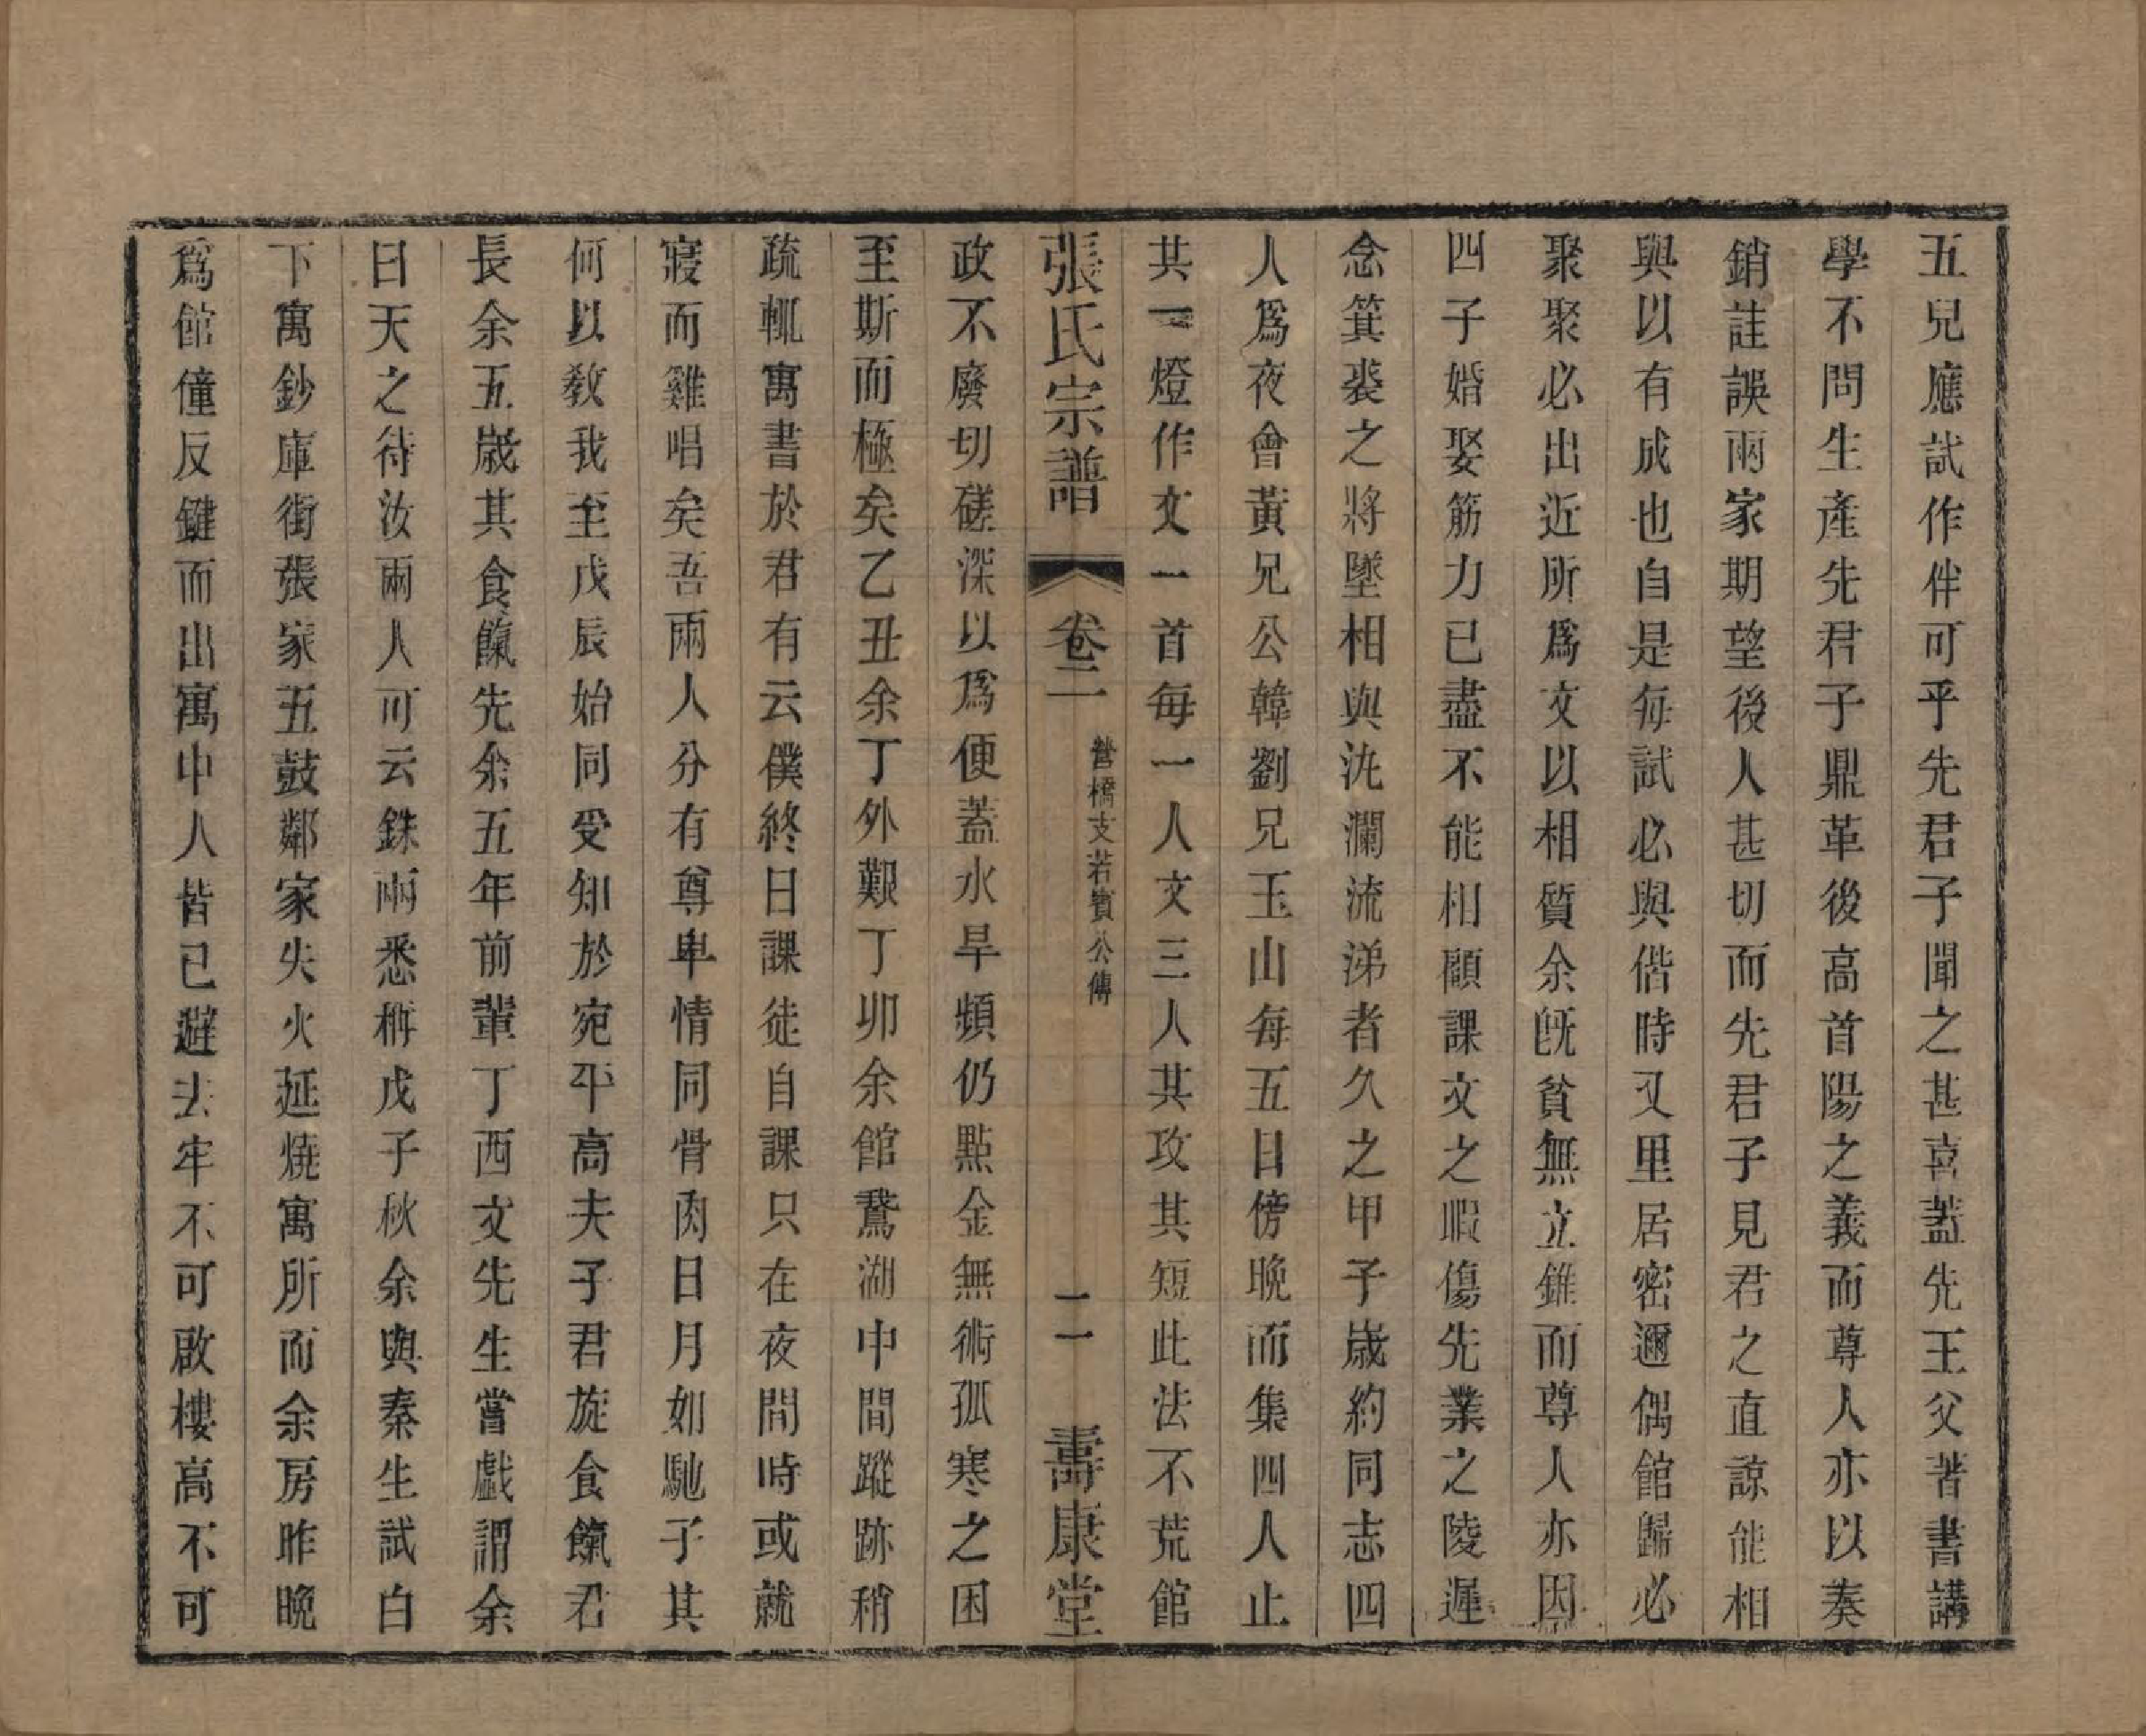 五兒應試作伴可乎先君子聞之甚喜蓋先王父著書講
學不問生產先君子鼎革後高首陽之義而尊人亦以奏
銷詿誤兩家期望後人甚切而先君子見君之直諒能相
與以有成也自是每試必與偕時又里居密邇偶館歸必
聚聚必出近所為文以相質余既貧無立錐而尊人亦因
四子婚娶筋力已盡不能相顧課文之暇傷先業之陵遲
念箕裘之將墜相與汍瀾流涕者久之甲子歲約同志四
人為夜會黃兄公韓劉兄玉山每五日傍晚而集四人止
共一燈作文一首每一人文三人其攻其短此法不荒館
張氏宗譜 卷二 營橋支若賓公傳 二 壽康堂
政不廢切磋深以為便蓋水旱頻仍點金無術孤寒之困
至斯而極矣乙丑余丁外艱丁卯余館鵞湖中間蹤跡稍
疏輒寓書於君有云僕終日課徒自課只在夜間時或就
寢而雞唱矣吾兩人分有尊卑情同骨肉日月如馳子其
何以教我至戊辰始同受知於宛平高夫子君旋食餼君
長余五歲其食餼先余五年前輩丁西文先生嘗戲謂余
曰天之待汝兩人可云銖兩悉稱戊子秋余與秦生試白
下寓鈔庫街張家五鼓鄰家失火延燒寓所而余房昨晚
為館僮反鍵而出寓中人皆已避去牢不可啟樓高不可